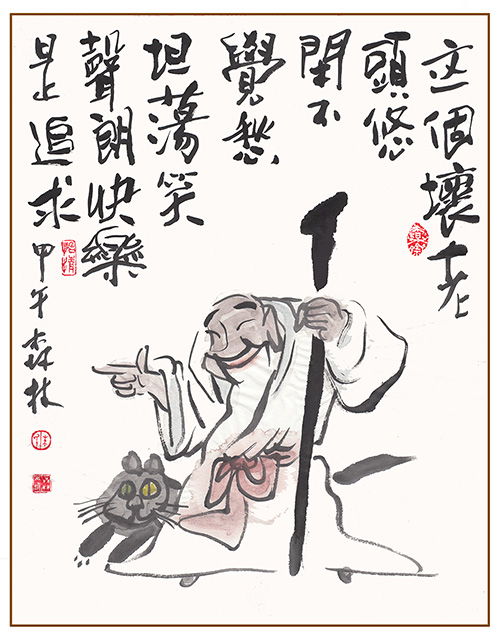 这個壞老
頭悠
閑不
覺愁
坦蕩笑
聲朗快樂
是追求
甲午森林